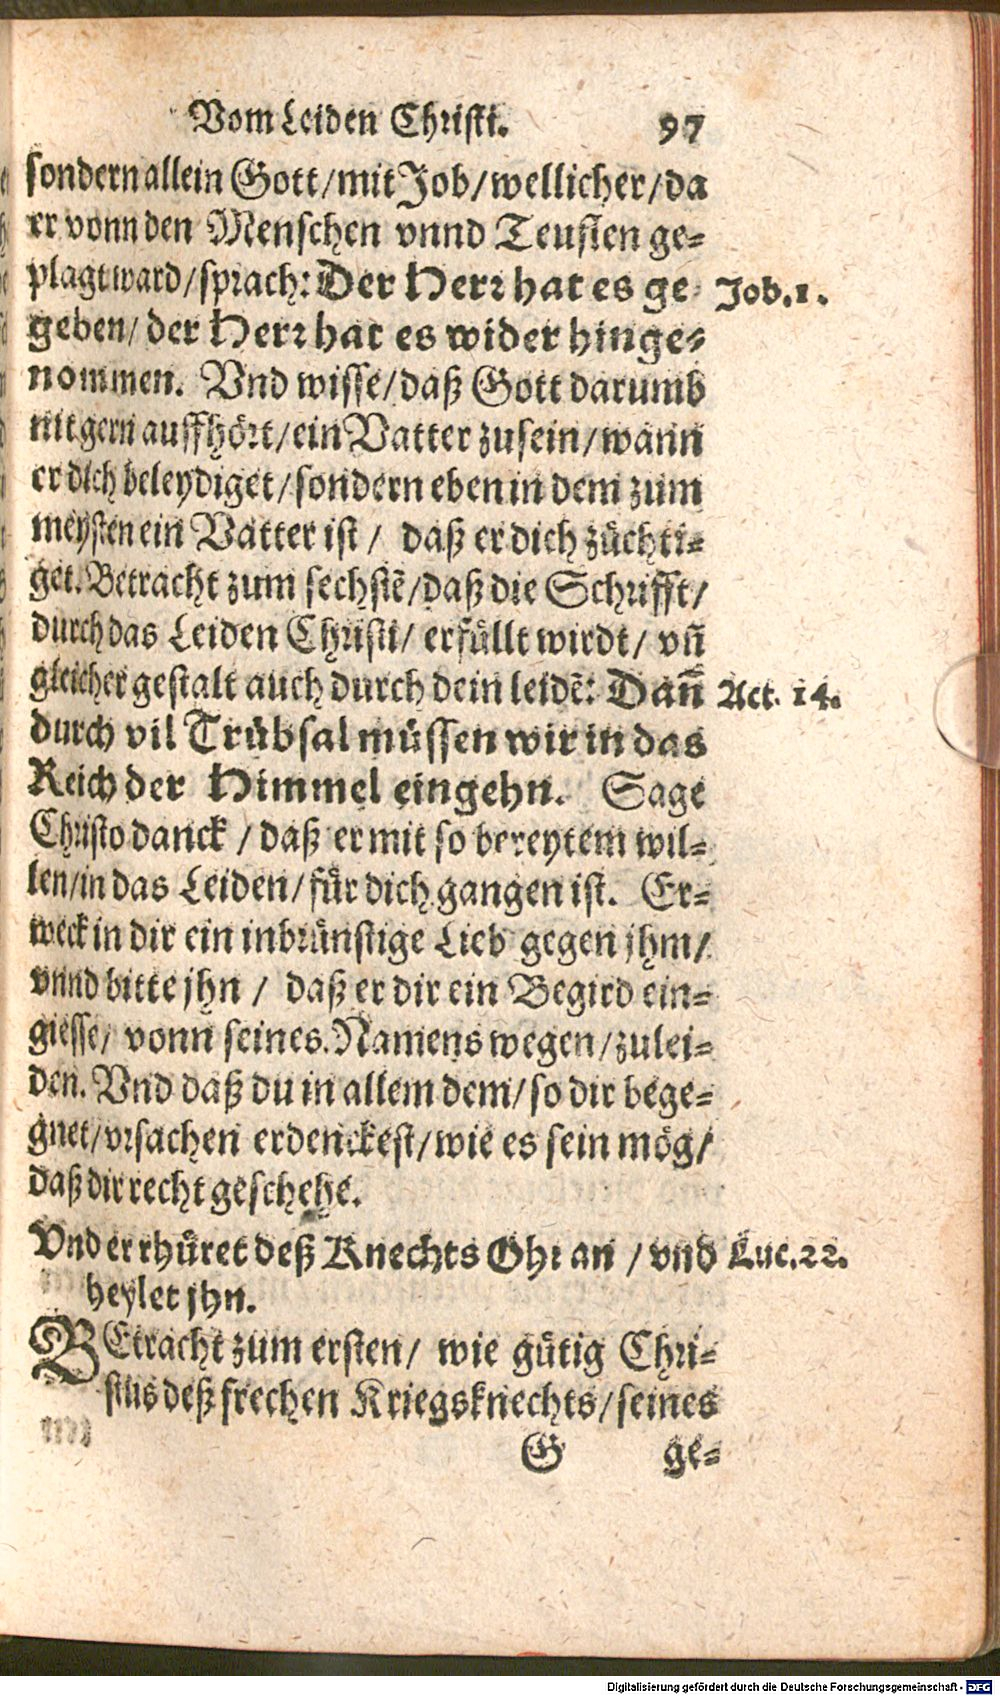 Vom Leiden Christi. 97
sondern allein Gott/mit Job/wellicher/da
er vonn den Menschen vnnd Teuflen ge-
plagt ward/sprach: Der Herr hat es ge- Job.1.
geben/ der Herr hat es wider hinge-
nommen. Vnd wisse/daß Gott darumb
nit gern auffhört/ein Vatter zusein/wann
er dich beleydiget/sondern eben in dem zum
meysten ein Vatter ist / daß er dich züchti-
get. Betracht zum sechstē/daß die Schrifft/
durch das Leiden Christi/ erfüllt wirdt/ vn̄
gleicher gestalt auch durch dein leidē: Dan̄ Act. 14.
durch vil Trübsal müssen wir in das
Reich der Himmel eingehn. Sage
Christo danck / daß er mit so bereytem wil-
len/in das Leiden/für dich gangen ist. Er-
weck in dir ein inbrünstige Lieb gegen jhm/
vnnd bitte jhn / daß er dir ein Begird ein-
giesse/ vonn seines Namens wegen/zulei-
den. Vnd daß du in allem dem/so dir bege-
gnet/vrsachen erdenckest/wie es sein mög/
daß dir recht geschehe.
Vnd er rhüret deß Knechts Ohr an / vnd Luc.22.
heylet jhn.
BEtracht zum ersten/ wie gütig Chri-
stus deß frechen Kriegsknechts/seines
G ge-
Digitalisierung gefördert durch die Deutsche Forschungsgemeinschaft - DFG